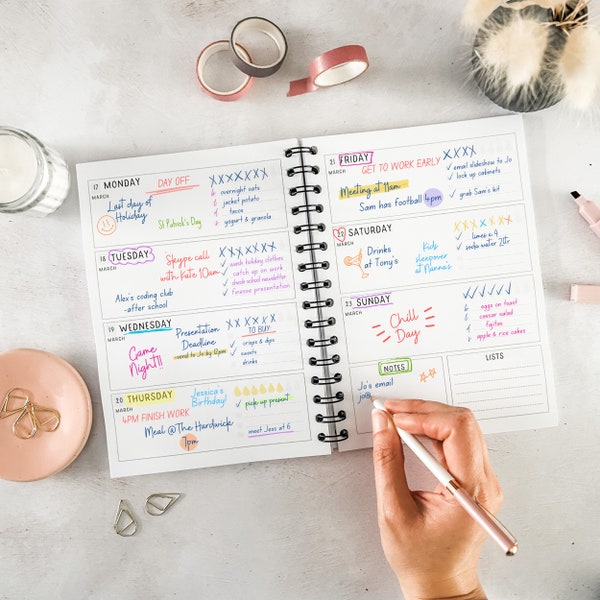 17 MONDAY
MARCH
DAY OFF
XXXXXXX
Last day of
Holiday
St Patrick's Day
overnight oats
jacket potato
tacos
yogurt & granola
18 TUESDAY
MARCH
Skype call
with Kate 10am
XXXXXX
Alex's coding club
-after school
wash holiday clothes
catch up on work
check school newsletter
finesse presentation
19 WEDNESDAY
MARCH
Game
Night!!
Presentation
Deadline
-send to Jo by 12pm
XXXXX
TO BUY
crisps & dips
sweets
drinks
20 THURSDAY
MARCH
4PM FINISH WORK
Jessica's
Birthday!
pick up present
Meal @The Hardwick
7pm
meet Jess at 6
21 FRIDAY
MARCH
GET TO WORK EARLY
XXXX
email slideshow to Jo
lock up cabinets
Meeting at 11am
Sam has football 4pm
grab Sam's kit
22 SATURDAY
MARCH
Drinks
at Tony's
Kids
sleepover
at Nanna's
XXXXXXX
limes x 4
soda water 2ltr
23 SUNDAY
MARCH
Chill
Day
eggs on toast
caesar salad
fajitas
apple & rice cakes
NOTES
Jo's email
jo@
LISTS